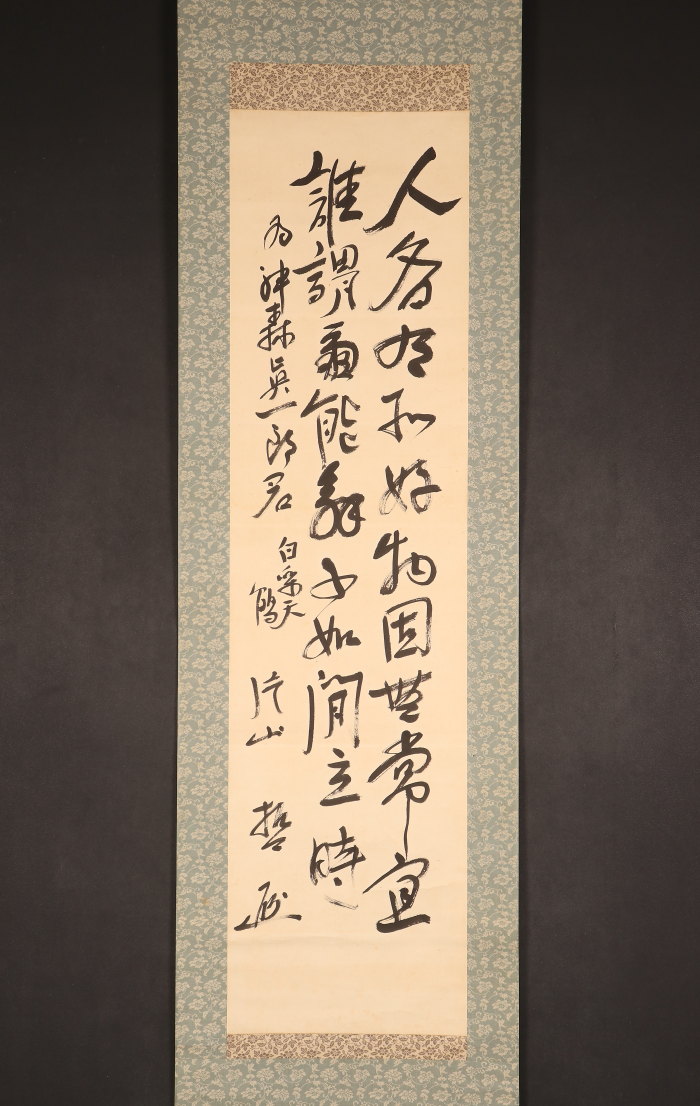 人各有所好物固無常宜
誰謂爾能舞不如閒立時
為一郎君
白楽天
鶴
片山哲